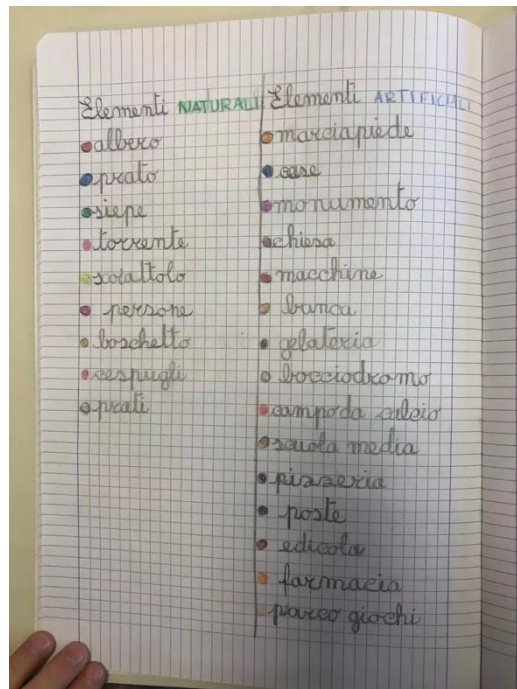 Elementi NATURALI
albero
prato
siepe
torrente
scoiattolo
persone
boschetto
cespugli
prati
Elementi ARTIFICIALI
marciapiede
case
monumento
chiesa
macchine
banca
gelateria
bocciodromo
campo da calcio
scuola media
pizzeria
poste
edicola
farmacia
parco giochi